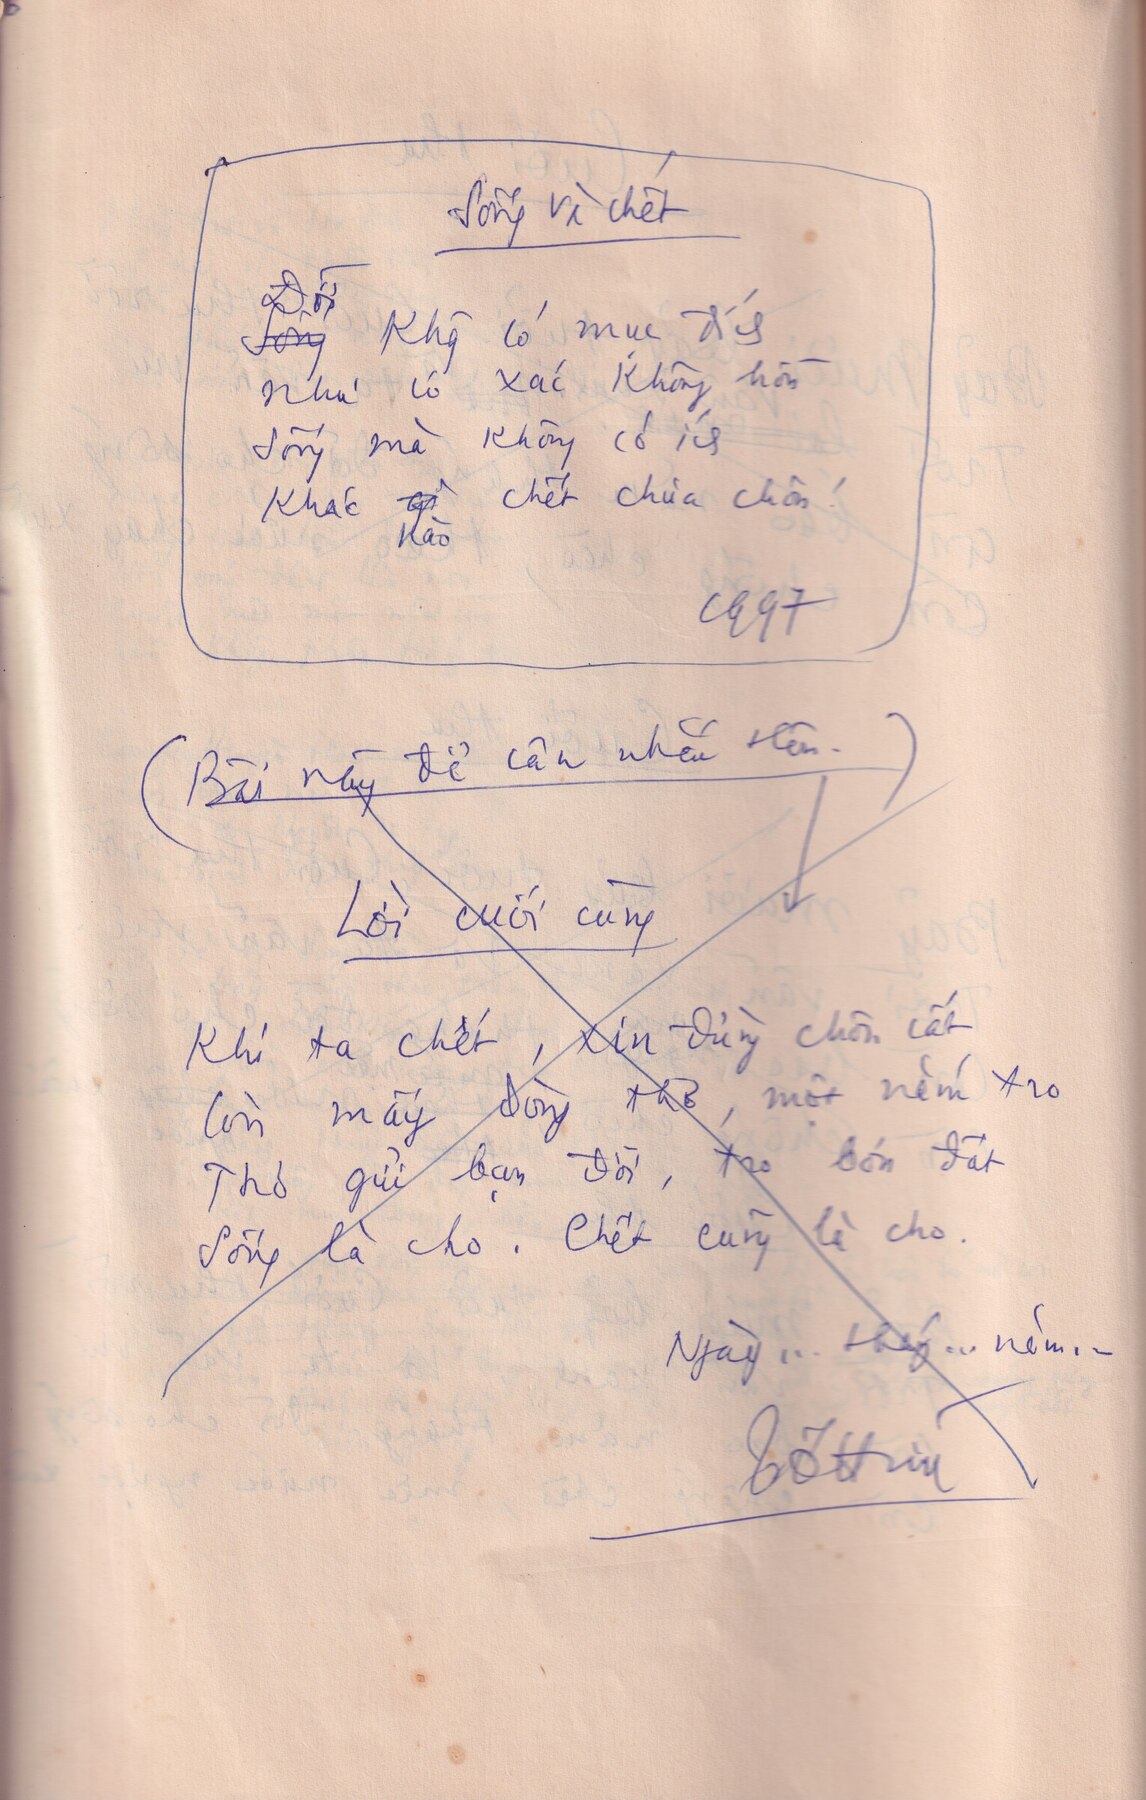 Sống và chết
Đời
Sống Khg có mục đích
Như có xác không hồn
Sống mà không có ích
Khác gì chết chưa chôn!
nào
1997
(Bài này để cân nhắc thêm.)
Lời cuối cùng
Khi ta chết, xin đừng chôn cất
Còn mấy dòng thơ, một nắm tro
Thơ gửi bạn đời, tro bón đất
Sống là cho. Chết cũng là cho.
Ngày... tháng... năm...
Tố Hữu